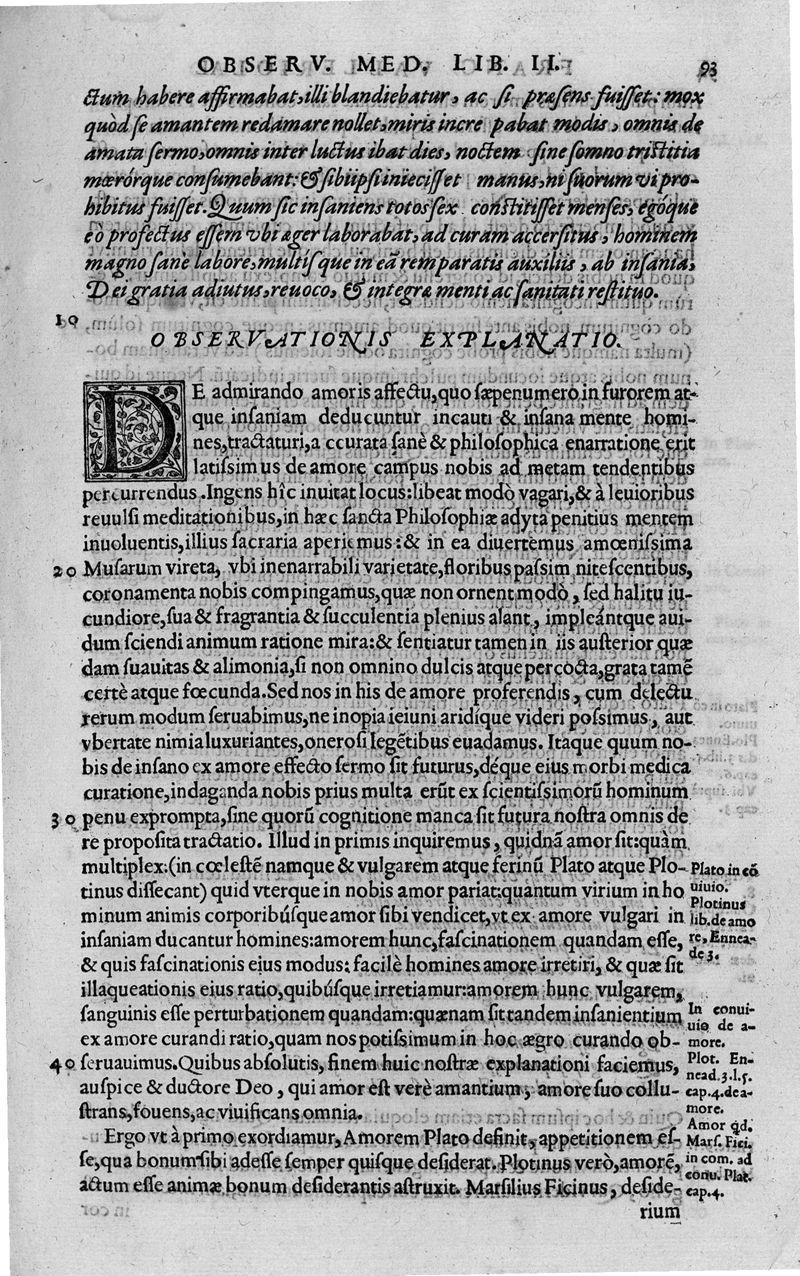 OBSERV. MED. LIB. II. 93
ctum habere affirmabat, illi blandiebatur, ac si præsens fuisset: mox
quòd se amantem redamare nollet, miris incre pabat modis, omnis de
amata sermo, omnis inter luctus ibat dies, noctem sine somno tristitia
mœrórque consumebant: & sibiipsi iniecisset manus, ni suorum vi pro-
hibitus fuisset. Quum sic insaniens totos sex constitisset menses, egóque
eò profectus essem vbi æger laborabat, ad curam accersitus, hominem
magno sanè labore, multisque in eā rem paratis auxiliis, ab insania,
Dei gratia adiutus, reuoco, & integræ menti ac sanitati restituo.
10
OBSERVATIONIS EXPLANATIO.
DE admirando amoris affectu, quo sæpenumerò in furorem at-
que insaniam deducuntur incauti & insana mente homi-
nes, tractaturi, a ccurata sanè & philosophica enarratione erit
latissimus de amore campus nobis ad metam tendentibus
percurrendus. Ingens hîc inuitat locus: libeat modò vagari, & à leuioribus
reuulsi meditationibus, in hæc sancta Philosophiæ adyta penitius mentem
inuoluentis, illius sacraria aperiemus: & in ea diuertemus amœnissima
20 Musarum vireta, vbi inenarrabili varietate, floribus passim nitescentibus,
coronamenta nobis compingamus, quæ non ornent modò, sed halitu iu-
cundiore, sua & fragrantia & succulentia plenius alant, impleántque aui-
dum sciendi animum ratione mira: & sentiatur tamen in iis austerior quæ
dam suauitas & alimonia, si non omnino dulcis atque percocta, grata tamē
certè atque fœcunda. Sed nos in his de amore proferendis, cum delectu
rerum modum seruabimus, ne inopia ieiuni aridíque videri possimus, aut
vbertate nimia luxuriantes, onerosi legētibus euadamus. Itaque quum no-
bis de insano ex amore effecto sermo sit futurus, déque eius morbi medica
curatione, indaganda nobis prius multa erūt ex scientissimorū hominum
30 penu exprompta, sine quorū cognitione manca sit futura nostra omnis de
re proposita tractatio. Illud in primis inquiremus, quidnā amor sit: quàm
multiplex: (in cœlestē namque & vulgarem atque ferinū Plato atque Plo-
tinus dissecant) quid vterque in nobis amor pariat: quantum virium in ho
minum animis corporibúsque amor sibi vendicet, vt ex amore vulgari in
insaniam ducantur homines: amorem hunc, fascinationem quandam esse,
& quis fascinationis eius modus: facilè homines amore irretiri, & quæ sit
illaqueationis eius ratio, quibúsque irretiamur: amorem hunc vulgarem,
sanguinis esse perturbationem quandam: quænam sit tandem insanientium
ex amore curandi ratio, quam nos potissimum in hoc ægro curando ob-
40 seruauimus. Quibus absolutis, finem huic nostræ explanationi faciemus,
auspice & ductore Deo, qui amor est verè amantium, amore suo collu-
strans, fouens, ac viuificans omnia.
Ergo vt à primo exordiamur, Amorem Plato definit, appetitionem es-
se, qua bonum sibi adesse semper quisque desiderat. Plotinus verò, amorē,
actum esse animæ bonum desiderantis astruxit. Marsilius Ficinus, deside-
rium
Plato in cō
uiuio.
Plotinus
lib. de amo
re, Ennea-
de 3.
In conui-
uio de a-
more.
Plot. En-
nead. 3. l. 5.
cap. 4. de a-
more.
Amor qd.
Mars. Fici.
in com. ad
conu. Plat.
cap. 4.